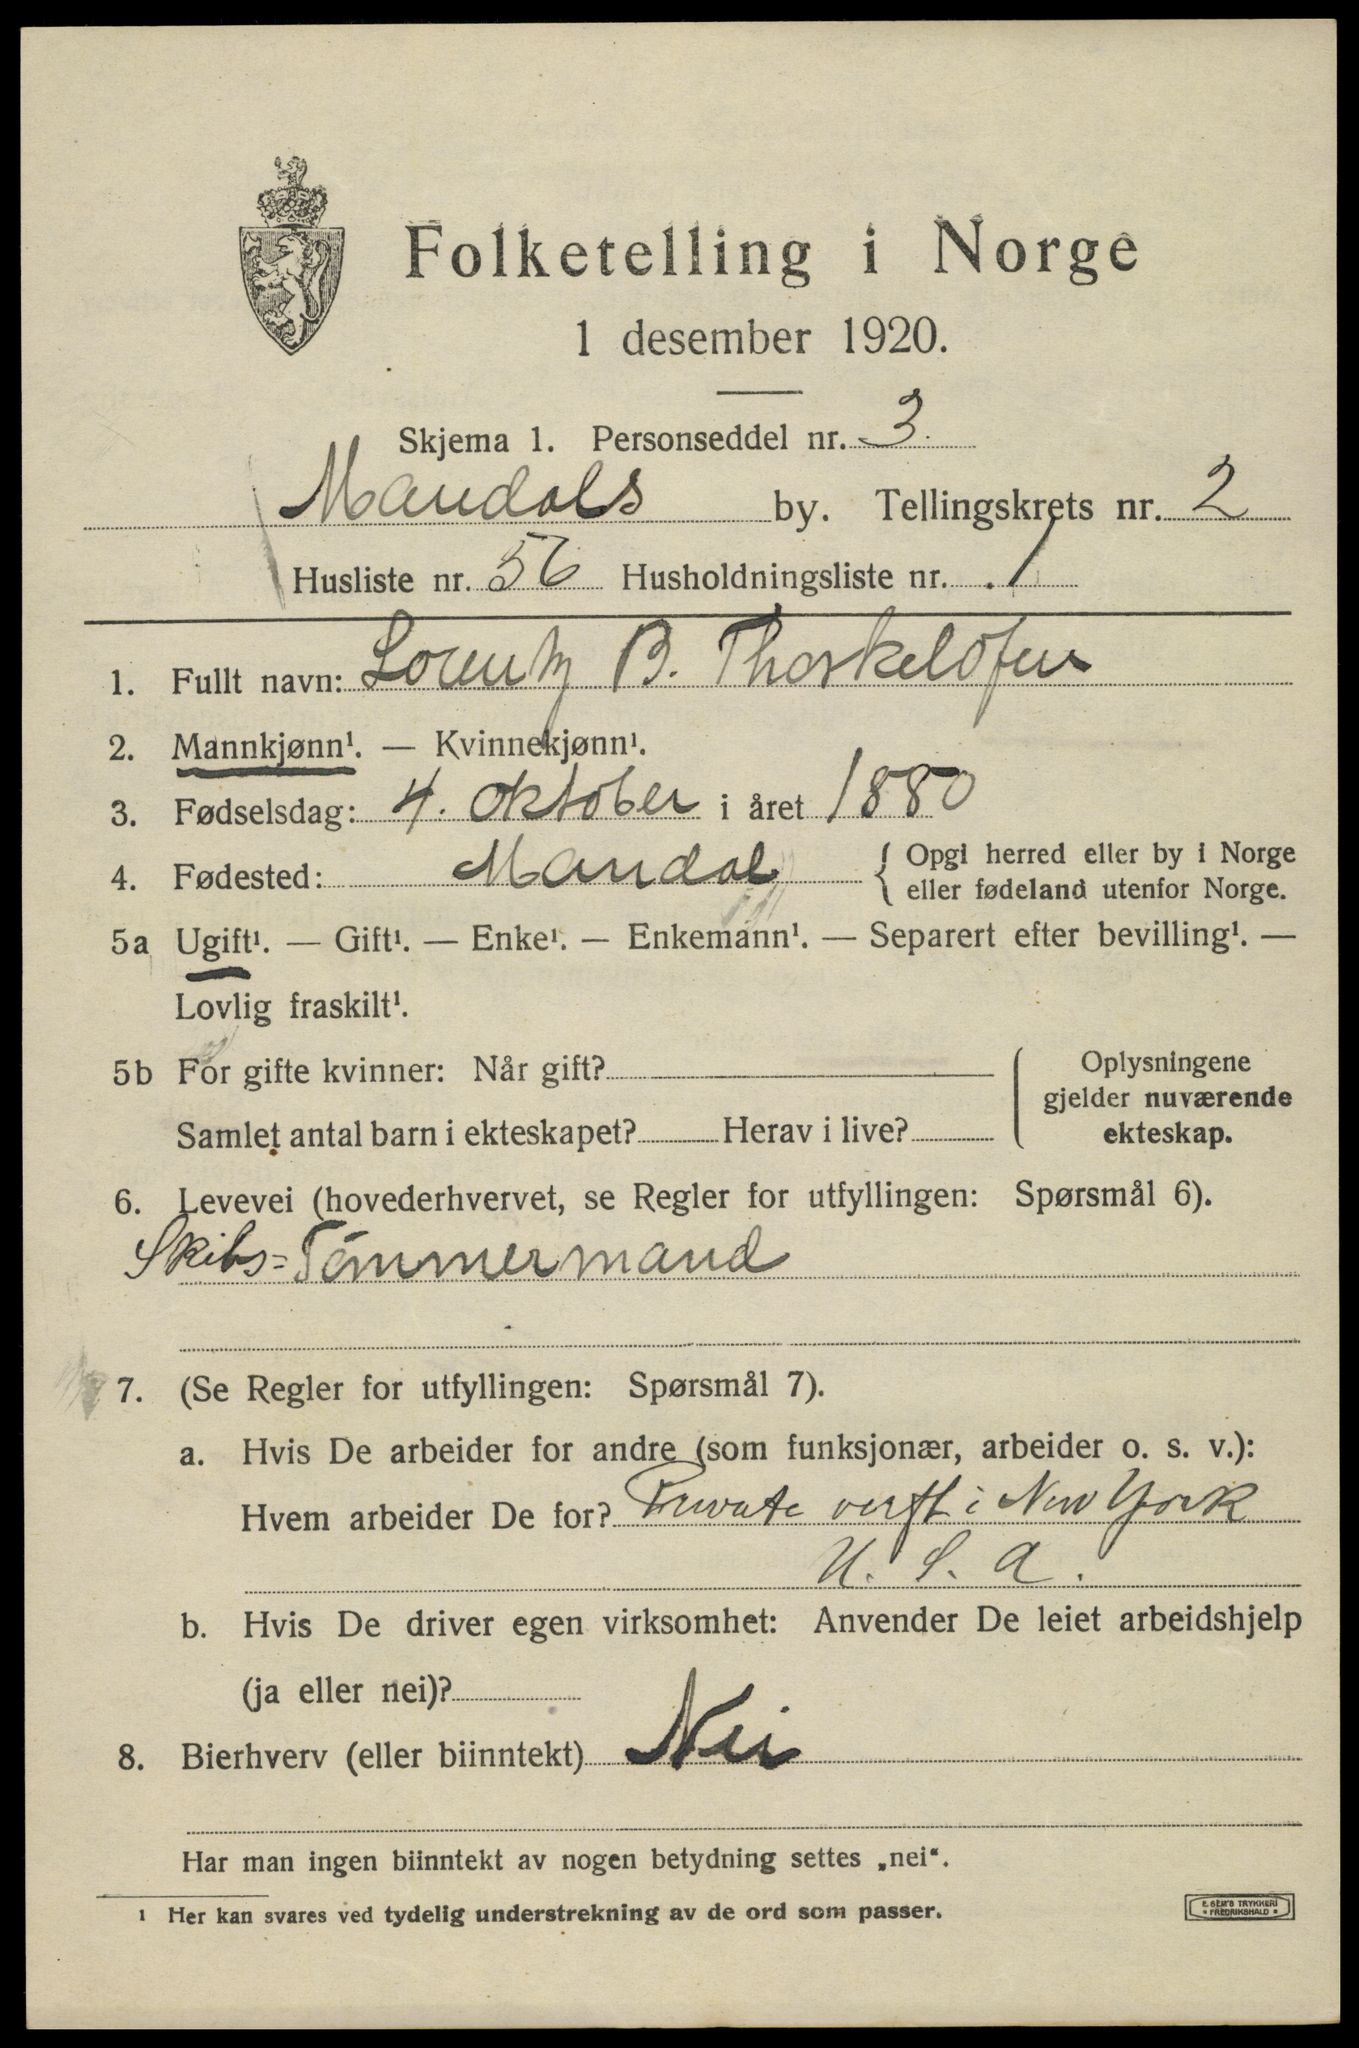 Folketelling i Norge
1 desember 1920.
Skjema 1. Personseddel nr. 3.
Mandals by. Tellingskrets nr. 2
Husliste nr. 56 Husholdningsliste nr. 1
1. Fullt navn: Lorentz B. Thorkelsfen
2. Mannkjønn¹. — Kvinnekjønn¹.
3. Fødselsdag: 4. oktober i året 1880
4. Fødested: Mandal { Opgi herred eller by i Norge
eller fødeland utenfor Norge.
5a Ugift¹. — Gift¹. — Enke¹. — Enkemann¹. — Separert efter bevilling¹. —
Lovlig fraskilt¹.
5b For gifte kvinner: Når gift?
Samlet antal barn i ekteskapet? Herav i live?
Oplysningene
gjelder nuværende
ekteskap.
6. Levevei (hovederhvervet, se Regler for utfyllingen: Spørsmål 6).
Skibs=Tømmermand
7. (Se Regler for utfyllingen: Spørsmål 7).
a. Hvis De arbeider for andre (som funksjonær, arbeider o. s. v.):
Hvem arbeider De for? Private verft i New York
U. S. A.
b. Hvis De driver egen virksomhet: Anvender De leiet arbeidshjelp
(ja eller nei)?
8. Bierhverv (eller biinntekt) Nei
Har man ingen biinntekt av nogen betydning settes „nei“.
¹ Her kan svares ved tydelig understrekning av de ord som passer.
E. SEM'S TRYKKERI
• FREDRIKSHALD •